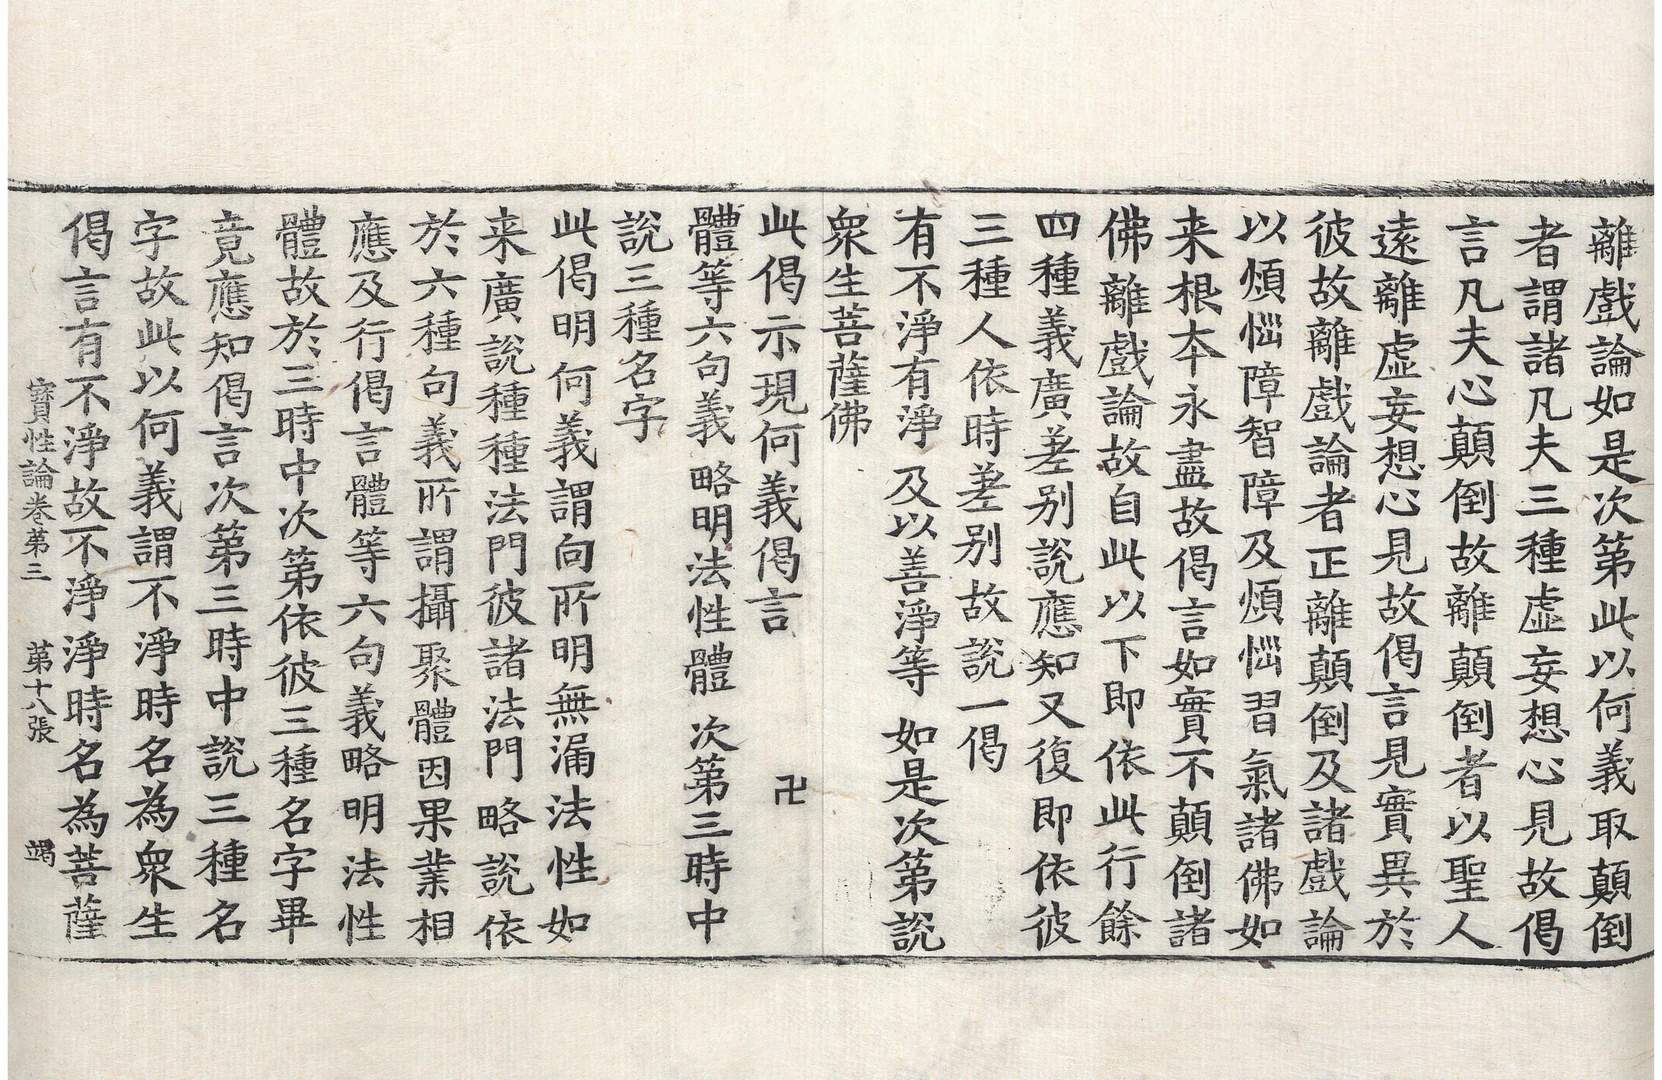 離戲論如是次第此以何義取顛倒
者謂諸凡夫三種虛妄想心見故偈
言凡夫心顛倒故離顛倒者以聖人
遠離虛妄想心見故偈言見實異於
彼故離戲論者正離顛倒及諸戲論
以煩惱障智障及煩惱習氣諸佛如
来根夲永盡故偈言如實不顛倒諸
佛離戲論故自此以下即依此行餘
四種義廣差别說應知又復即依彼
三種人依時差别故說一偈
有不淨有淨 及以善淨等 如是次第說
衆生菩薩佛
此偈示現何義偈言 卍
體等六句義 略明法性體 次第三時中
說三種名字
此偈明何義謂向所明無漏法性如
来廣說種種法門彼諸法門略說依
於六種句義所謂攝聚體因果業相
應及行偈言體等六句義略明法性
體故於三時中次第依彼三種名字畢
竟應知偈言次第三時中說三種名
字故此以何義謂不淨時名為衆生
偈言有不淨故不淨淨時名為菩薩
寶性論卷苐三 苐十八張 竭